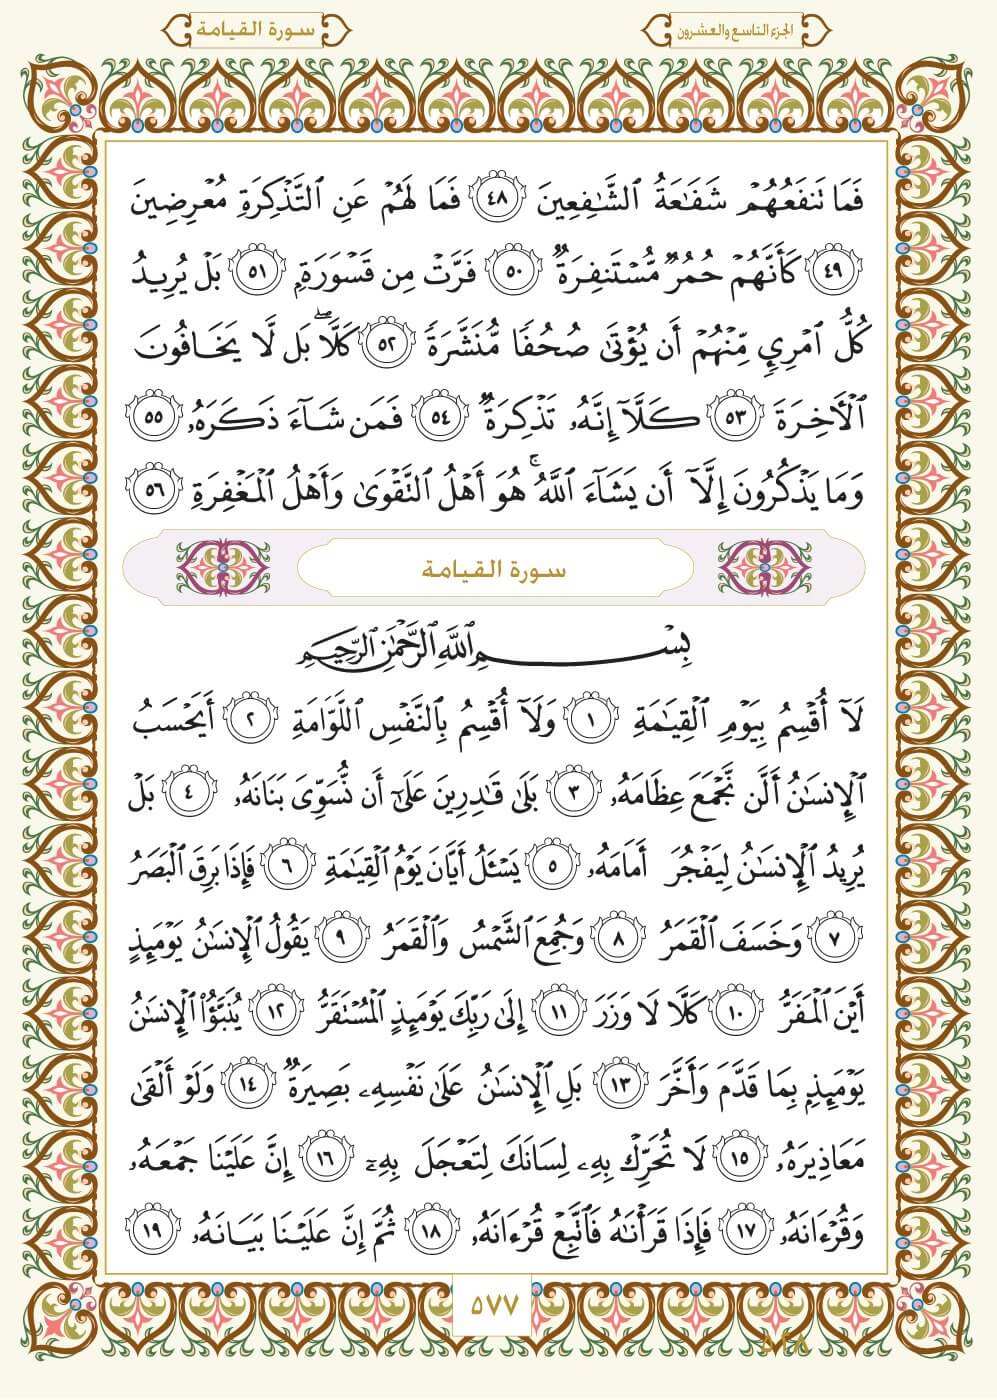 الجزء التاسع والعشرون
سورة القيامة
فَمَا تَنفَعُهُمْ شَفَٰعَةُ ٱلشَّٰفِعِينَ ٤٨ فَمَا لَهُمْ عَنِ ٱلتَّذْكِرَةِ مُعْرِضِينَ
٤٩ كَأَنَّهُمْ حُمُرٌ مُّسْتَنفِرَةٌ ٥٠ فَرَّتْ مِن قَسْوَرَةٍۭ ٥١ بَلْ يُرِيدُ
كُلُّ ٱمْرِئٍ مِّنْهُمْ أَن يُؤْتَىٰ صُحُفًا مُّنَشَّرَةً ٥٢ كَلَّاۖ بَل لَّا يَخَافُونَ
ٱلْأَخِرَةَ ٥٣ كَلَّآ إِنَّهُۥ تَذْكِرَةٌ ٥٤ فَمَن شَآءَ ذَكَرَهُۥ ٥٥
وَمَا يَذْكُرُونَ إِلَّآ أَن يَشَآءَ ٱللَّهُۚ هُوَ أَهْلُ ٱلتَّقْوَىٰ وَأَهْلُ ٱلْمَغْفِرَةِ ٥٦
سورة القيامة
بِسْمِ ٱللَّهِ ٱلرَّحْمَٰنِ ٱلرَّحِيمِ
لَآ أُقْسِمُ بِيَوْمِ ٱلْقِيَٰمَةِ ١ وَلَآ أُقْسِمُ بِٱلنَّفْسِ ٱللَّوَّامَةِ ٢ أَيَحْسَبُ
ٱلْإِنسَٰنُ أَلَّن نَّجْمَعَ عِظَامَهُۥ ٣ بَلَىٰ قَٰدِرِينَ عَلَىٰٓ أَن نُّسَوِّىَ بَنَانَهُۥ ٤ بَلْ
يُرِيدُ ٱلْإِنسَٰنُ لِيَفْجُرَ أَمَامَهُۥ ٥ يَسْـَٔلُ أَيَّانَ يَوْمُ ٱلْقِيَٰمَةِ ٦ فَإِذَا بَرِقَ ٱلْبَصَرُ
٧ وَخَسَفَ ٱلْقَمَرُ ٨ وَجُمِعَ ٱلشَّمْسُ وَٱلْقَمَرُ ٩ يَقُولُ ٱلْإِنسَٰنُ يَوْمَئِذٍ
أَيْنَ ٱلْمَفَرُّ ١٠ كَلَّا لَا وَزَرَ ١١ إِلَىٰ رَبِّكَ يَوْمَئِذٍ ٱلْمُسْتَقَرُّ ١٢ يُنَبَّؤُا۟ ٱلْإِنسَٰنُ
يَوْمَئِذٍۭ بِمَا قَدَّمَ وَأَخَّرَ ١٣ بَلِ ٱلْإِنسَٰنُ عَلَىٰ نَفْسِهِۦ بَصِيرَةٌ ١٤ وَلَوْ أَلْقَىٰ
مَعَاذِيرَهُۥ ١٥ لَا تُحَرِّكْ بِهِۦ لِسَانَكَ لِتَعْجَلَ بِهِۦٓ ١٦ إِنَّ عَلَيْنَا جَمْعَهُۥ
وَقُرْءَانَهُۥ ١٧ فَإِذَا قَرَأْنَٰهُ فَٱتَّبِعْ قُرْءَانَهُۥ ١٨ ثُمَّ إِنَّ عَلَيْنَا بَيَانَهُۥ ١٩
٥٧٧